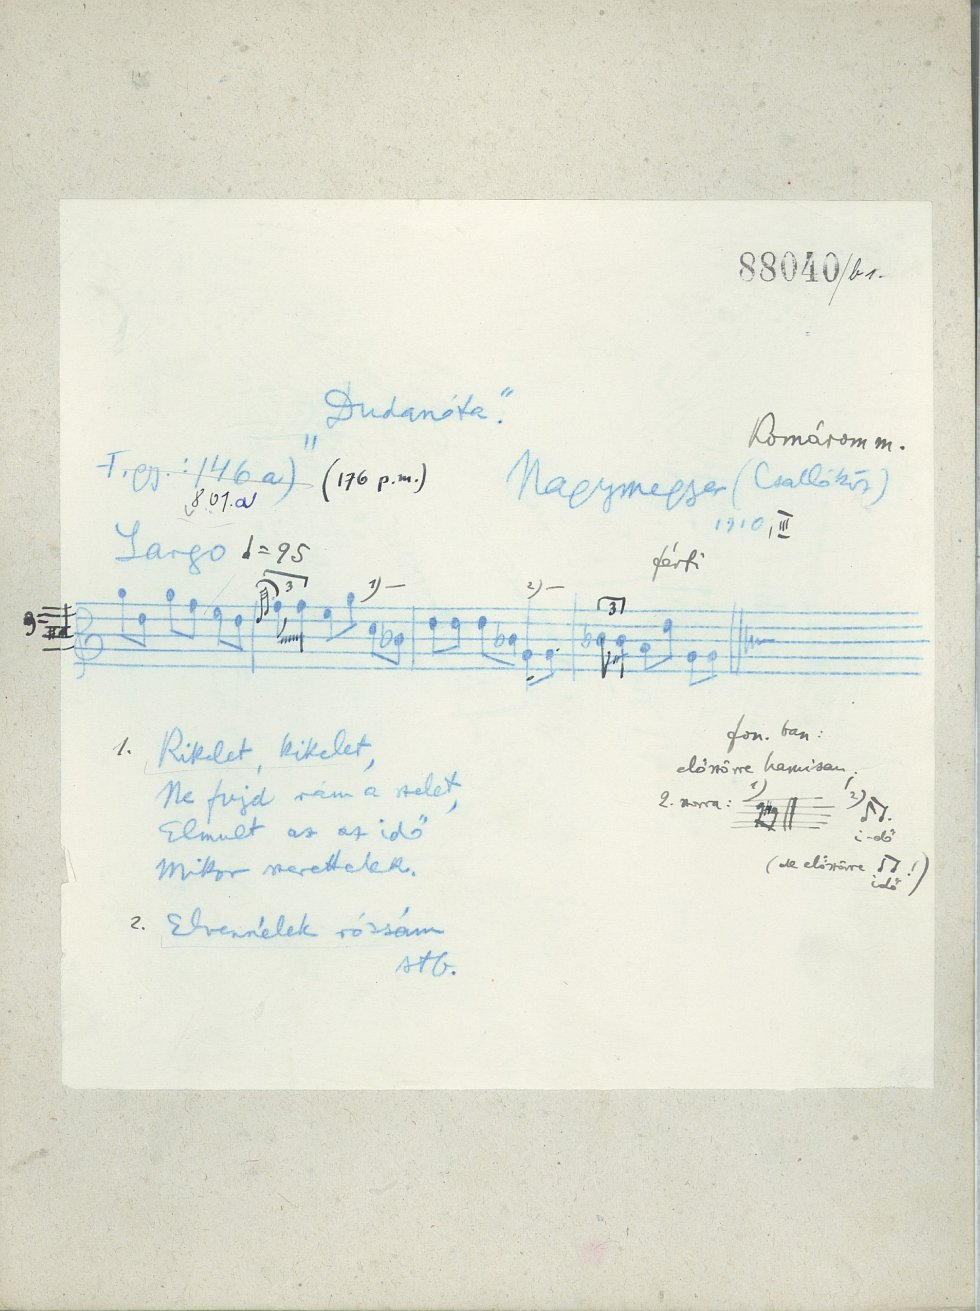 88040/b1.
„Dudanóta."
Komárom m.
F. gy.: 146 a) (176 p.m.) Nagymegyer (Csallóköz)
8.01.a
1910, III
Largo = 95
férfi
3 1) 2) 3
fon. ban:
1. Kikelet, kikelet,
előszörre hamisan,
Ne fujd rám a szelet,
2. szorra: 1) 2)
Elmult az az idő
i-dő
Mikor szerettelek.
(de előszörre idő!)
2. Elvennélek rózsám
stb.